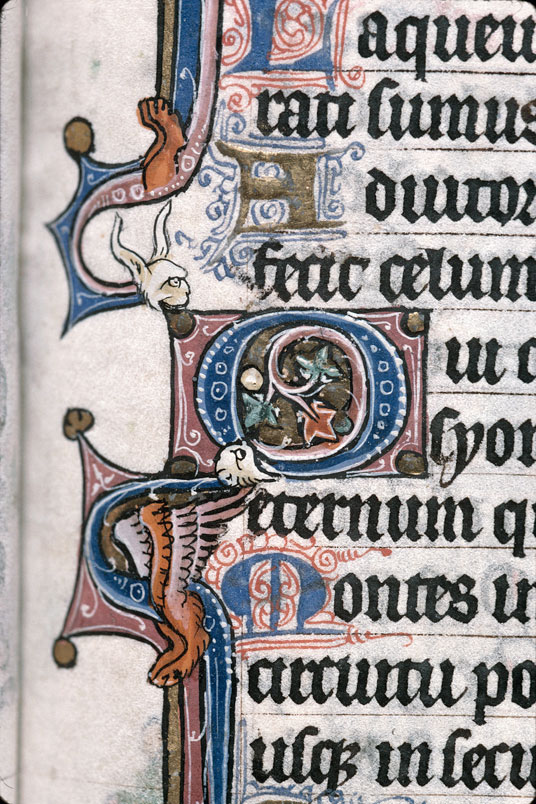 Laqueu
rati sumus
Adiutor
fecit celum
Qui c
syon
eternum q
Montes in
circuitu po
usq; in secu